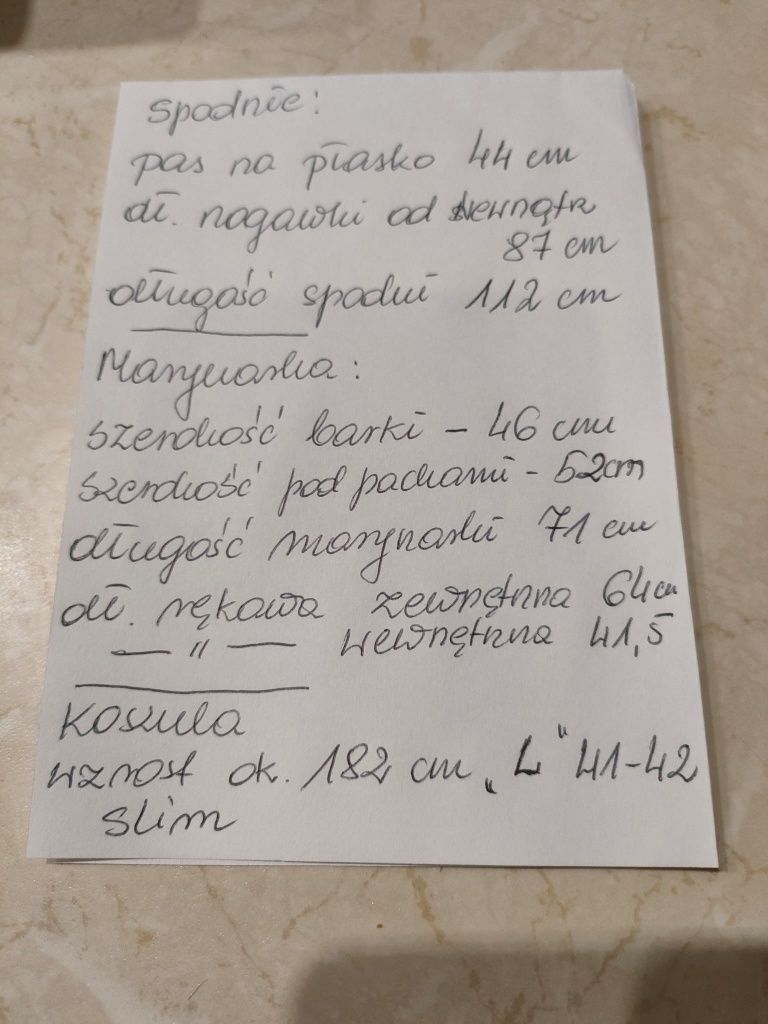 Spodnie:
pas na płasko 44 cm
dł. nogawki od wewnątrz
87 cm
długość spodni 112 cm
Marynarka:
szerokość barki - 46 cm
szerokość pod pachami - 52cm
długość marynarki 71 cm
dł. rękawa zewnętrzna 64cm
— " — wewnętrzna 41,5
Koszula
wzrost ok. 182 cm „L" 41-42
slim